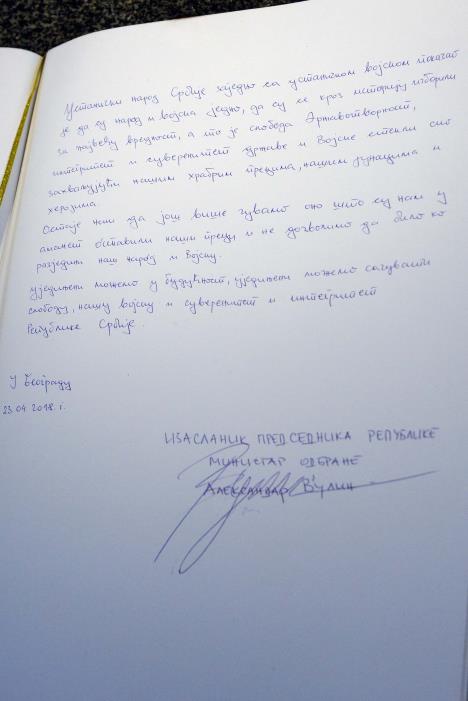 Устанички народ Србије заједно са устаничком војском показао
је да су народ и војска једно, да су се кроз историју изборили
за највећу вредност, а то је слобода државотворност,
интегритет и суверенитет државе и Војске
захваљујући нашим храбрим прецима, нашим јунацима и
херојима.
Остаје нама да још више чувамо оно што су нам у
аманет оставили наши преци и не дозволимо да било ко
разједини наш народ и Војску.
Уједињени можемо у будућност, уједињени можемо сачувати
слободу, нашу војску и суверенитет и интегритет
Републике Србије.
У Београду
23.04.2018. г.
ИЗАСЛАНИК ПРЕДСЕДНИКА РЕПУБЛИКЕ
МИНИСТАР ОДБРАНЕ
АЛЕКСАНДАР ВУЛИН